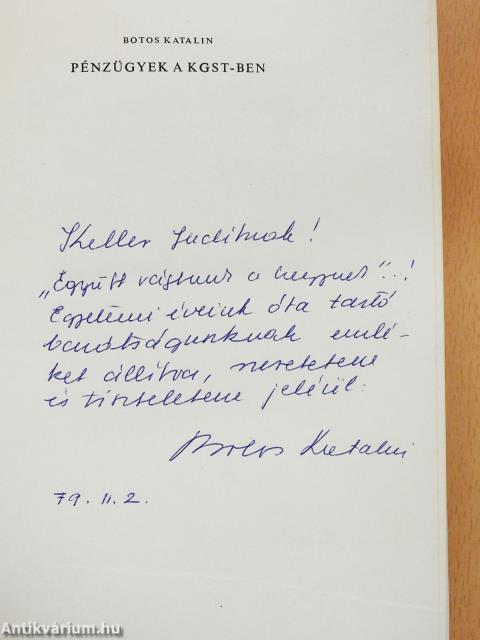 BOTOS KATALIN
PÉNZÜGYEK A KGST-BEN
Keller Juditnak!
„Együtt vágtunk a neknek"..!
Egyetemi éveink óta tartó
barátságunknak emlé-
ket állítva, szeretetem
és tiszteletem jeléül:
Botos Katalin
79. II. 2.
Antikvárium.hu